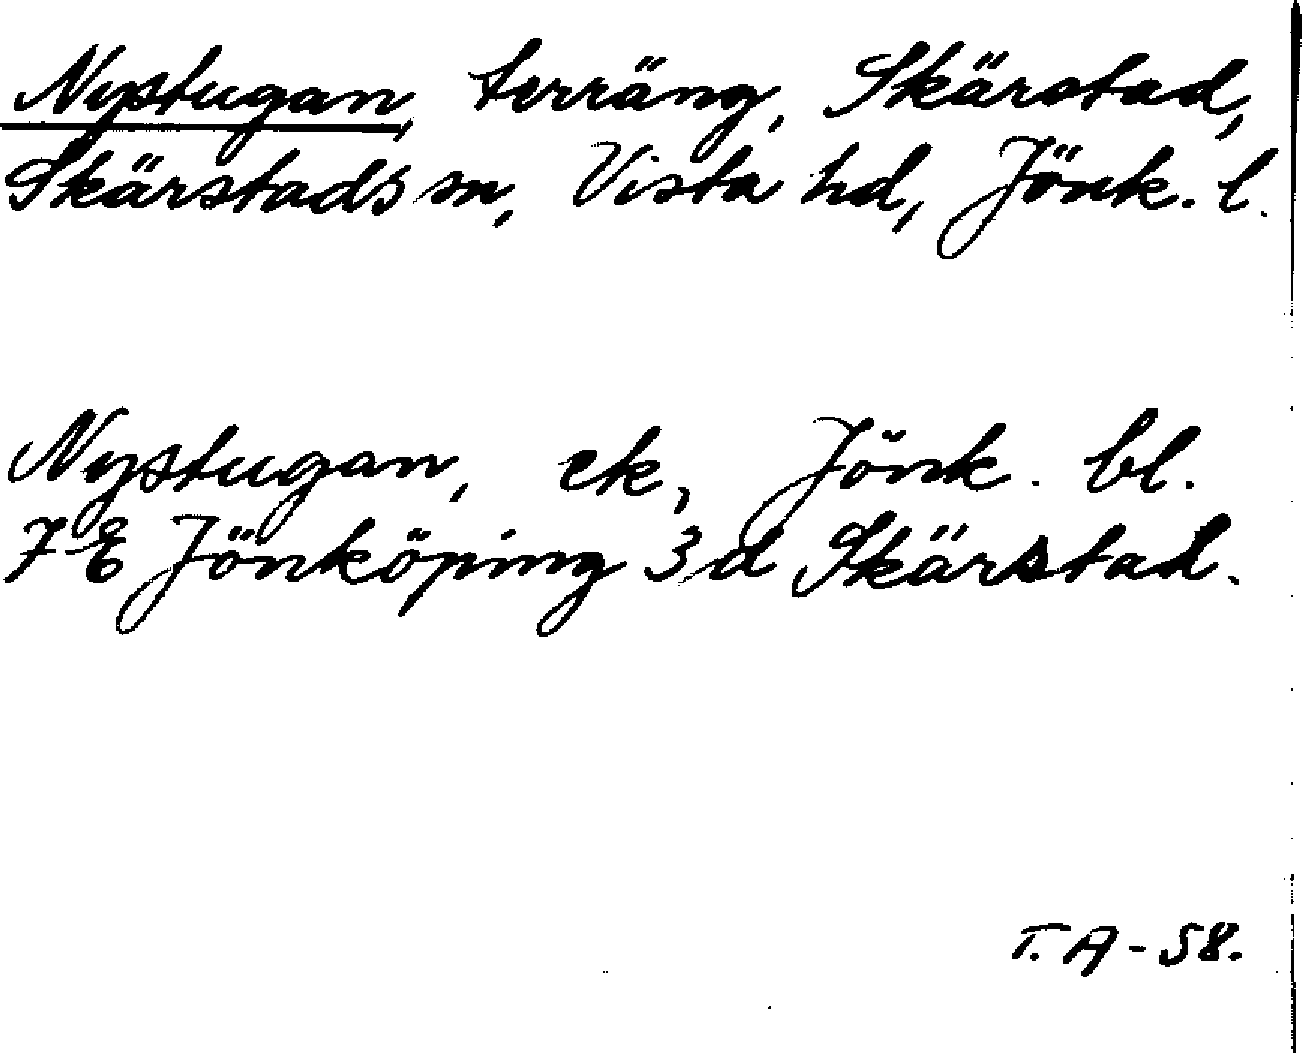 Nystugan, terräng, Skärstad,
Skärstads sn, Vista hd, Jönk. l.
Nystugan, ek, Jönk. bl.
7 E Jönköping 3 d Skärstad.
T. A - 58.